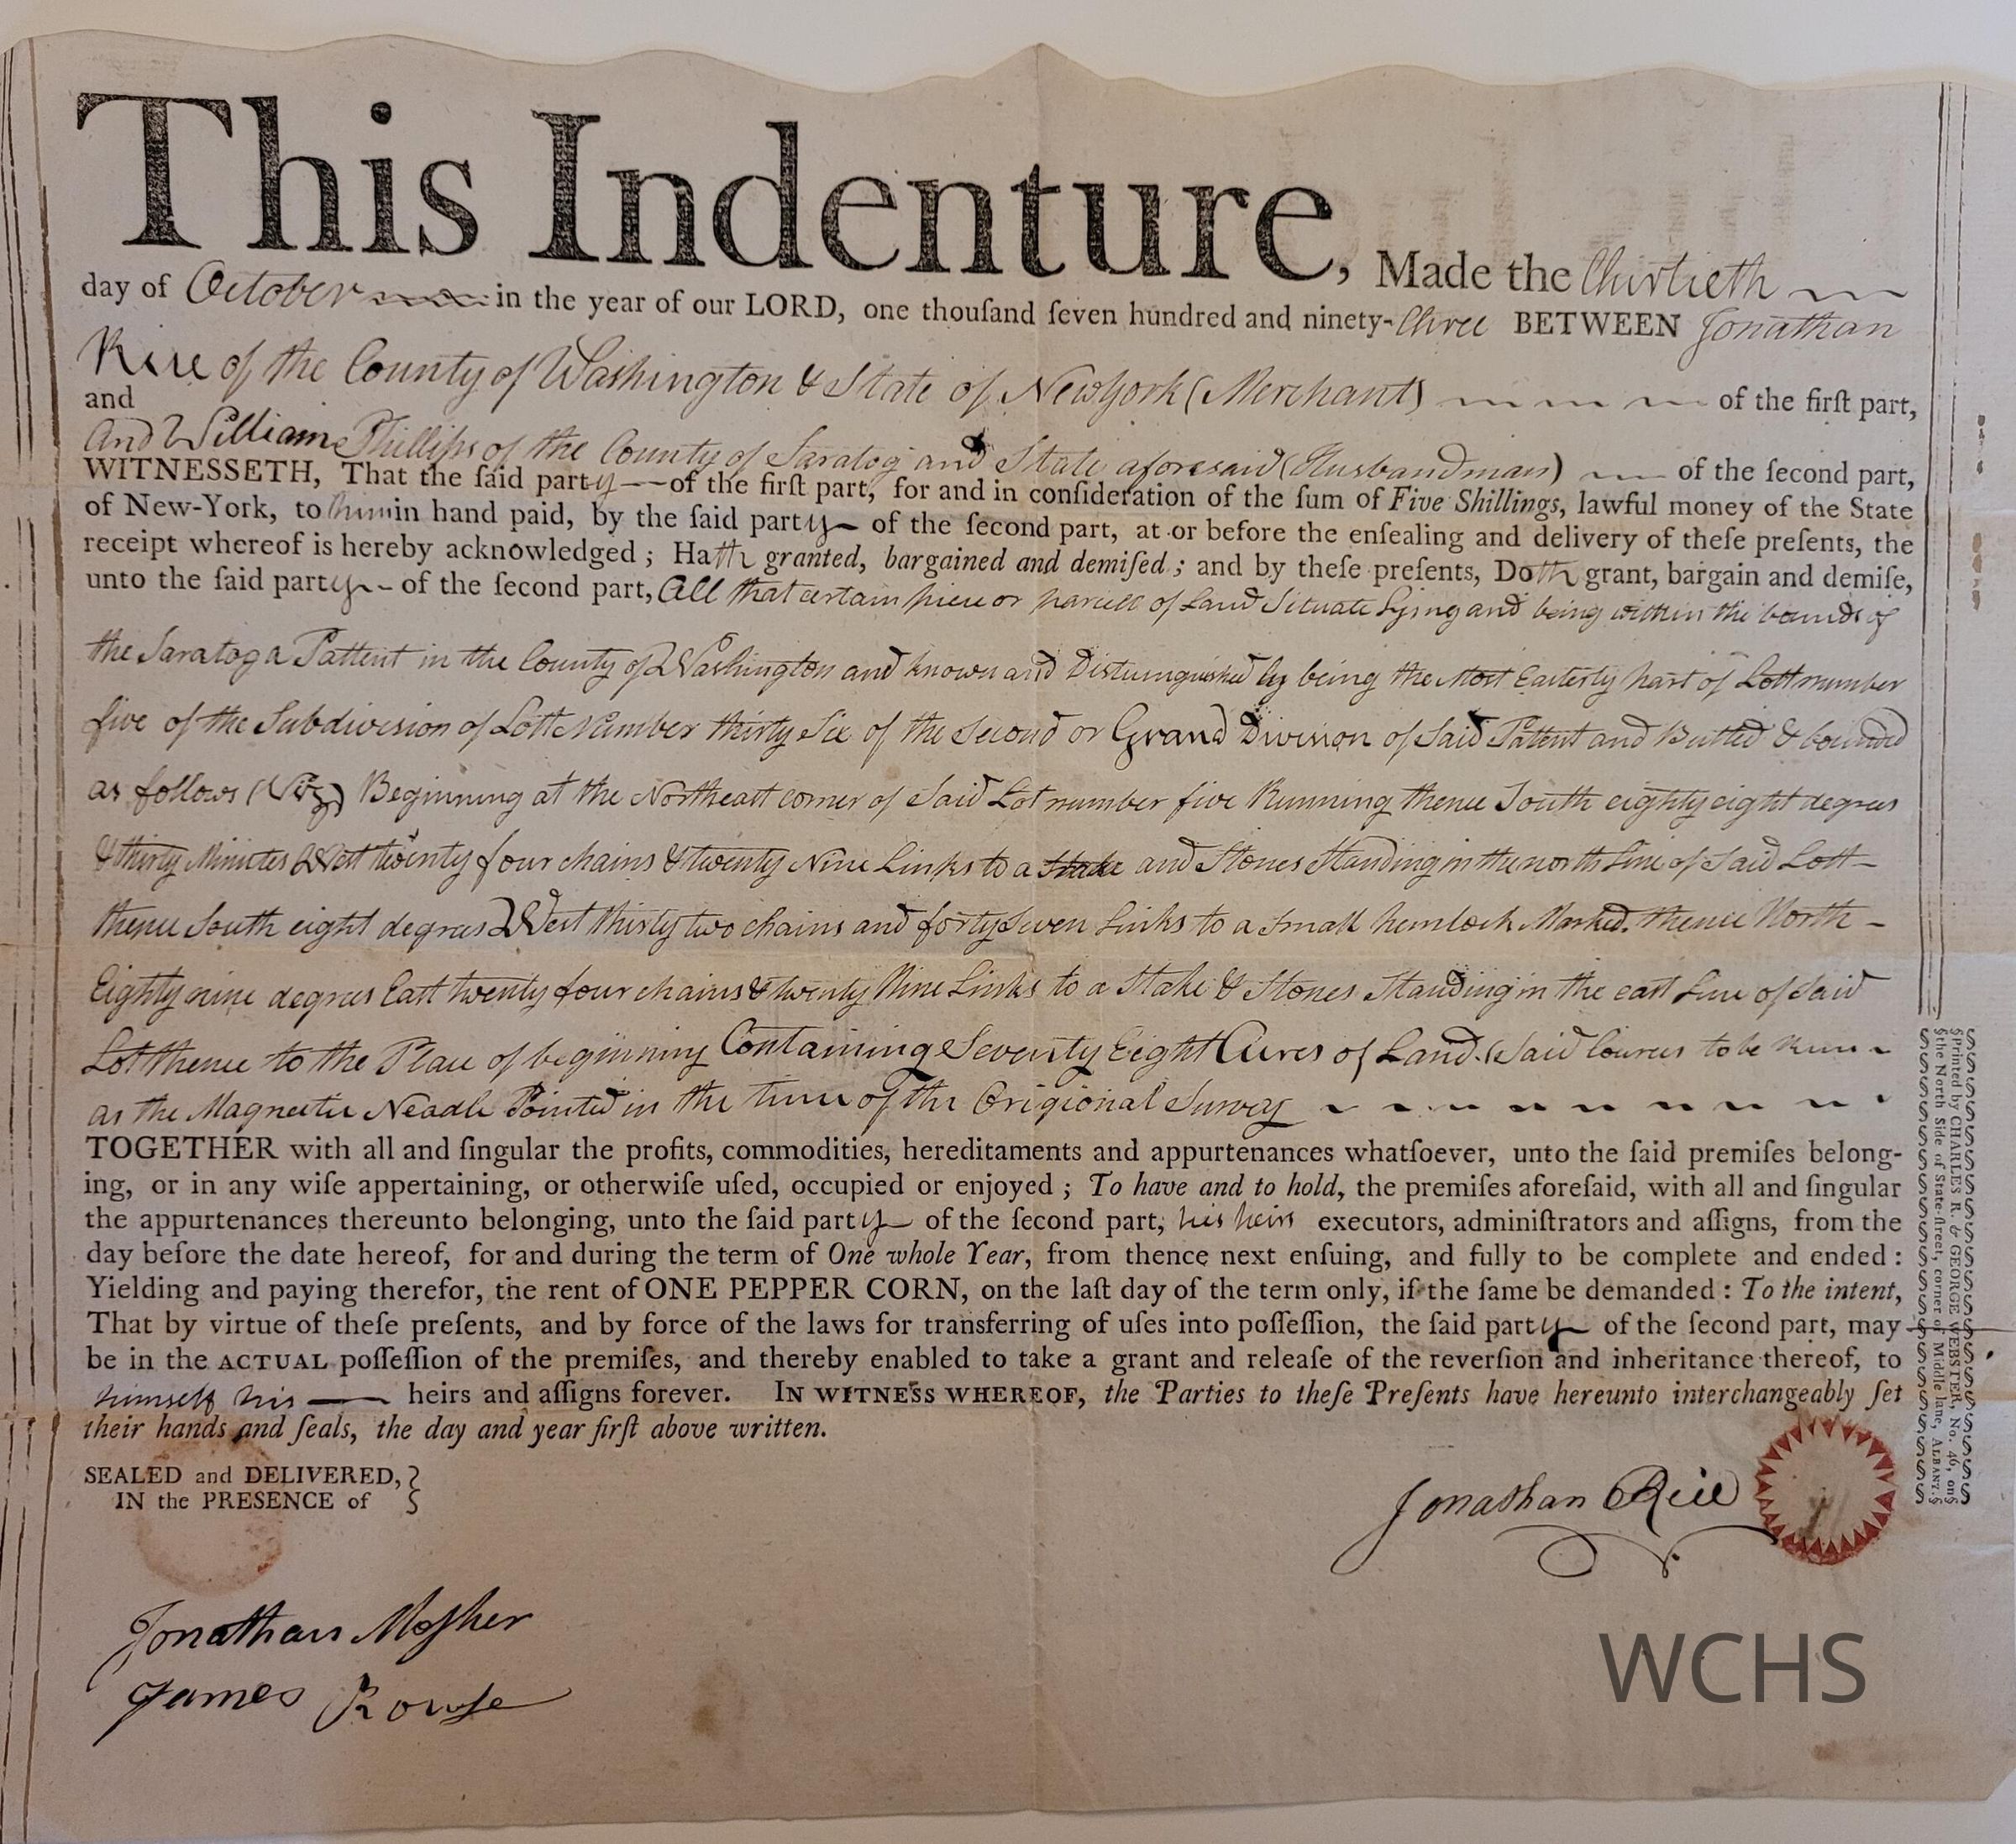 This Indenture, Made the Thirtieth
day of October in the year of our LORD, one thouſand ſeven hundred and ninety-three BETWEEN Jonathan
Rice of the County of Washington & State of Newyork (Merchant) of the firſt part,
and
And William Phillips of the County of Saratog and State aforesaid (Husbandman) of the ſecond part,
WITNESSETH, That the ſaid party of the firſt part, for and in conſideration of the ſum of Five Shillings, lawful money of the State
of New-York, to him in hand paid, by the ſaid party of the ſecond part, at or before the enſealing and delivery of theſe preſents, the
receipt whereof is hereby acknowledged; Hath granted, bargained and demiſed; and by theſe preſents, Doth grant, bargain and demiſe,
unto the ſaid party of the ſecond part, All that certain piece or parcell of Land Situate Lying and being within the bounds of
the Saratoga Pattent in the County of Washington and known and Distinguished by being the Most Easterly part of Lott number
five of the Subdivision of Lott Number thirty Six of the Second or Grand Division of Said Pattent and Butted & bounded
as follows (Viz) Beginning at the Northeast corner of Said Lot number five Running thence South eighty eight degrees
& thirty Minutes West twenty four chains & twenty Nine Links to a Stake and Stones Standing in the north Line of Said Lott
thence South eight degrees West thirty two chains and forty Seven Links to a Small hemlock Marked. thence North
Eighty nine degrees East twenty four chains & twenty Nine Links to a Stake & Stones Standing in the east Line of Said
Lot thence to the Place of beginning Containing Seventy Eight Acres of Land. (Said Courses to be Run
as the Magneetic Neadle Pointed in the time of the Origional Survey
TOGETHER with all and ſingular the profits, commodities, hereditaments and appurtenances whatſoever, unto the ſaid premiſes belong-
ing, or in any wiſe appertaining, or otherwiſe uſed, occupied or enjoyed; To have and to hold, the premiſes aforeſaid, with all and ſingular
the appurtenances thereunto belonging, unto the ſaid party of the ſecond part, his heirs executors, adminiſtrators and aſſigns, from the
day before the date hereof, for and during the term of One whole Year, from thence next enſuing, and fully to be complete and ended:
Yielding and paying therefor, the rent of ONE PEPPER CORN, on the laſt day of the term only, if the ſame be demanded: To the intent,
That by virtue of theſe preſents, and by force of the laws for transferring of uſes into poſſeſſion, the ſaid party of the ſecond part, may
be in the ACTUAL poſſeſſion of the premiſes, and thereby enabled to take a grant and releaſe of the reverſion and inheritance thereof, to
himself his heirs and aſſigns forever. IN WITNESS WHEREOF, the Parties to theſe Preſents have hereunto interchangeably ſet
their hands and ſeals, the day and year firſt above written.
SEALED and DELIVERED,
IN the PRESENCE of
Jonathan Rice
Jonathan Moſher
James Rowſe
§Printed by CHARLES R. & GEORGE WEBSTER, No. 46, on§
§the North Side of State-ſtreet, corner of Middle-lane, ALBANY.§
WCHS